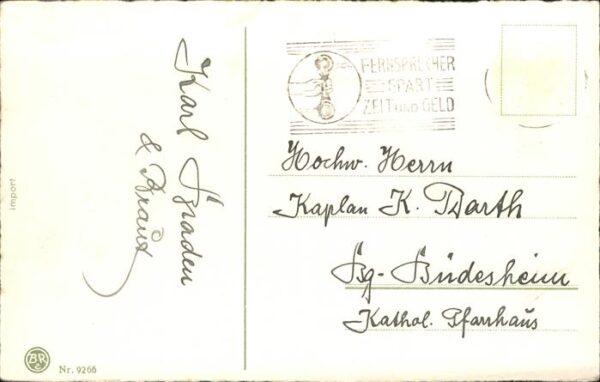 Karl Spaden
& Braut
FERNSPRECHER
SPART
ZEIT UND GELD
Hochw. Herrn
Kaplan K. Barth
Bg-Büdesheim
Kathol. Pfarrhaus
import
Nr. 9266